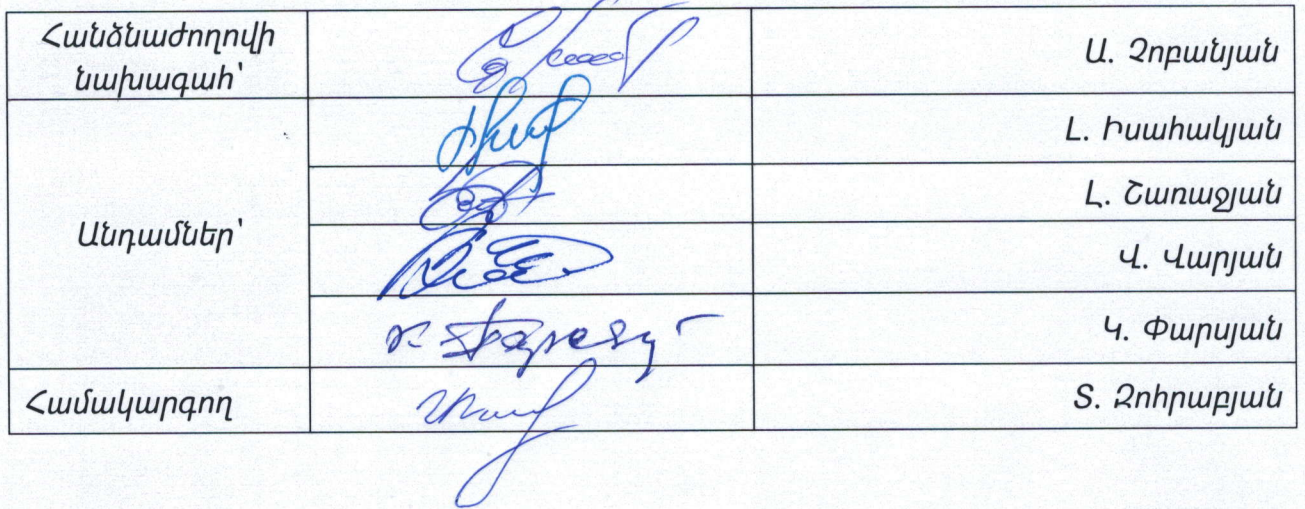 Հանձնաժողովի
նախագահ՝
Ա. Չոբանյան
Անդամներ՝
Լ. Իսահակյան
Լ. Շառաջյան
Վ. Վարյան
Կ. Փարսյան
Համակարգող
Տ. Զոհրաբյան